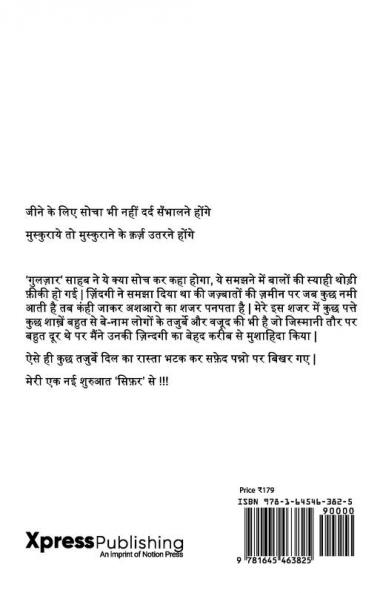 जीने के लिए सोचा भी नहीं दर्द सँभालने होंगे
मुस्कुराये तो मुस्कुराने के क़र्ज़ उतरने होंगे
'गुलज़ार' साहब ने ये क्या सोच कर कहा होगा, ये समझने में बालों की स्याही थोड़ी
फ़ीकी हो गई | ज़िंदगी ने समझा दिया था की जज़्बातों की ज़मीन पर जब कुछ नमी
आती है तब कंही जाकर अशआरो का शजर पनपता है | मेरे इस शजर में कुछ पत्ते
कुछ शाख़ें बहुत से बे-नाम लोगों के तजुर्बे और वजूद की भी है जो जिस्मानी तौर पर
बहुत दूर थे पर मैंने उनकी ज़िन्दगी का बेहद करीब से मुशाहिदा किया |
ऐसे ही कुछ तजुर्बे दिल का रास्ता भटक कर सफ़ेद पन्नो पर बिखर गए |
मेरी एक नई शुरुआत 'सिफ़र' से !!!
Price ₹179
ISBN 978-1-64546-382-5
90000
9 781645 463825
XpressPublishing
An Imprint of Notion Press